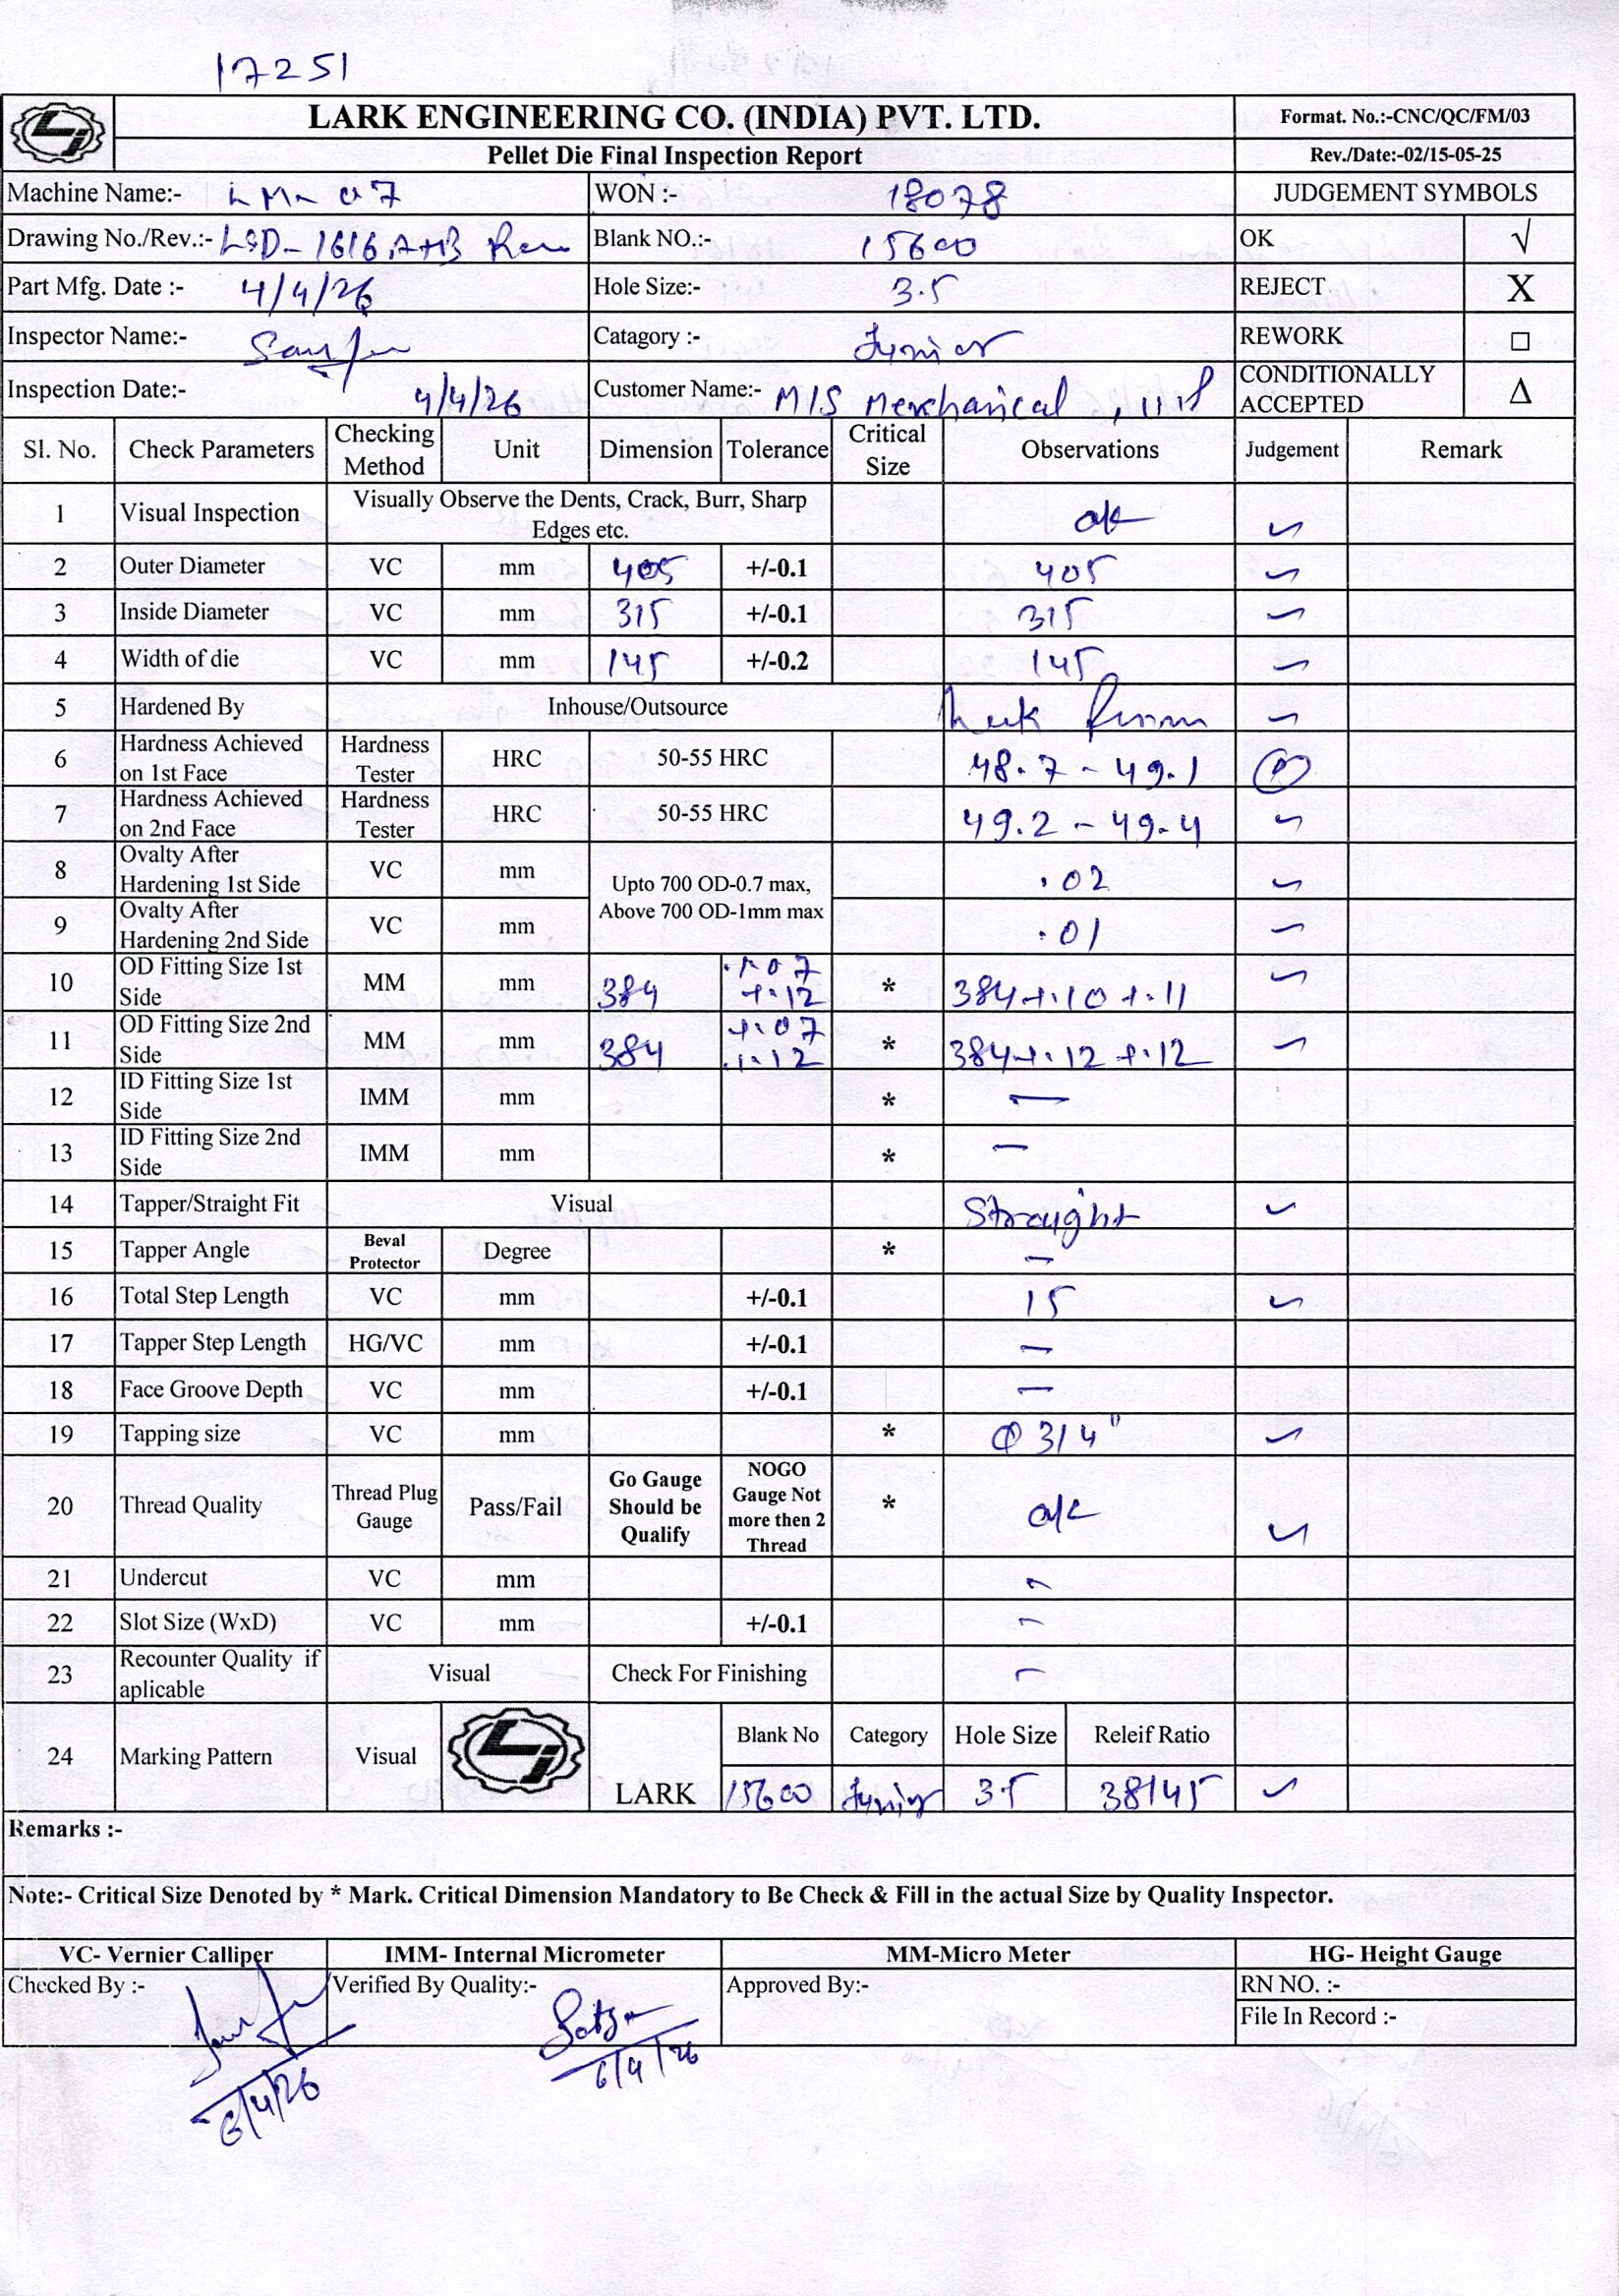 17251
LARK ENGINEERING CO. (INDIA) PVT. LTD.
Format. No.:-CNC/QC/FM/03
Pellet Die Final Inspection Report
Rev./Date:-02/15-05-25
Machine Name:- 07 WON :- 18078 JUDGEMENT SYMBOLS
Drawing No./Rev.:- LSD-1616 A+B Blank NO.:- 15600 OK √
Part Mfg. Date :- 4/4/26 Hole Size:- 3.5 REJECT X
Inspector Name:- Catagory :- Junior REWORK □
Inspection Date:- 4/4/26 Customer Name:- M/S Mechanical CONDITIONALLY ACCEPTED Δ
Sl. No. Check Parameters Checking Method Unit Dimension Tolerance Critical Size Observations Judgement Remark
1 Visual Inspection Visually Observe the Dents, Crack, Burr, Sharp Edges etc. ok ✓
2 Outer Diameter VC mm 405 +/-0.1 405 ✓
3 Inside Diameter VC mm 315 +/-0.1 315 ✓
4 Width of die VC mm 145 +/-0.2 145 ✓
5 Hardened By Inhouse/Outsource ✓
6 Hardness Achieved on 1st Face Hardness Tester HRC 50-55 HRC 48.7 - 49.1
7 Hardness Achieved on 2nd Face Hardness Tester HRC 50-55 HRC 49.2 - 49.4 ✓
8 Ovalty After Hardening 1st Side VC mm Upto 700 OD-0.7 max, Above 700 OD-1mm max .02 ✓
9 Ovalty After Hardening 2nd Side VC mm .01 ✓
10 OD Fitting Size 1st Side MM mm 384 +.07 +.12 * 384+.10 +.11 ✓
11 OD Fitting Size 2nd Side MM mm 384 +.07 +.12 * 384+.12 +.12 ✓
12 ID Fitting Size 1st Side IMM mm * —
13 ID Fitting Size 2nd Side IMM mm * —
14 Tapper/Straight Fit Visual Straight ✓
15 Tapper Angle Beval Protector Degree * —
16 Total Step Length VC mm +/-0.1 15 ✓
17 Tapper Step Length HG/VC mm +/-0.1 —
18 Face Groove Depth VC mm +/-0.1 —
19 Tapping size VC mm * Φ 3/4" ✓
20 Thread Quality Thread Plug Gauge Pass/Fail Go Gauge Should be Qualify NOGO Gauge Not more then 2 Thread * o/k ✓
21 Undercut VC mm —
22 Slot Size (WxD) VC mm +/-0.1 —
23 Recounter Quality if aplicable Visual Check For Finishing —
24 Marking Pattern Visual LARK Blank No Category Hole Size Releif Ratio
15600 Junior 3.5 38/45 ✓
Remarks :-
Note:- Critical Size Denoted by * Mark. Critical Dimension Mandatory to Be Check & Fill in the actual Size by Quality Inspector.
VC- Vernier Calliper IMM- Internal Micrometer MM-Micro Meter HG- Height Gauge
Checked By :- Verified By Quality:- Approved By:- RN NO. :-
File In Record :-
6/4/26 6/4/26